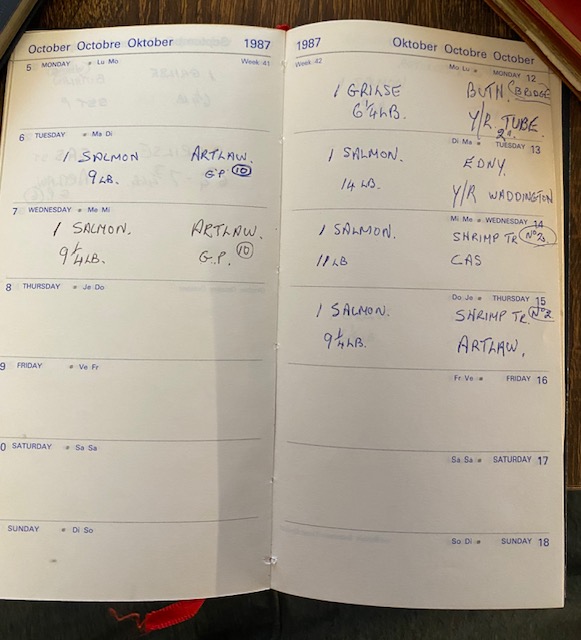 October Octobre Oktober 1987
5 MONDAY Lu Mo Week 41
6 TUESDAY Ma Di
1 SALMON ARTLAW.
9 LB. G.P. 10
7 WEDNESDAY Me Mi
1 SALMON. ARTLAW.
9 1/4 LB. G.P. 10
8 THURSDAY Je Do
9 FRIDAY Ve Fr
0 SATURDAY Sa Sa
SUNDAY Di So
1987 Oktober Octobre October
Week 42 Mo Lu MONDAY 12
1 GRILSE BUTH. BRIDGE
6 1/4 LB. Y/R TUBE
2"
Di Ma TUESDAY 13
1 SALMON. EDNY.
14 LB. Y/R WADDINGTON
Mi Me WEDNESDAY 14
1 SALMON. SHRIMP TR. Nº2
11 LB CAS
Do Je THURSDAY 15
1 SALMON. SHRIMP TR. Nº2
9 1/4 LB. ARTLAW.
Fr Ve FRIDAY 16
Sa Sa SATURDAY 17
So Di SUNDAY 18